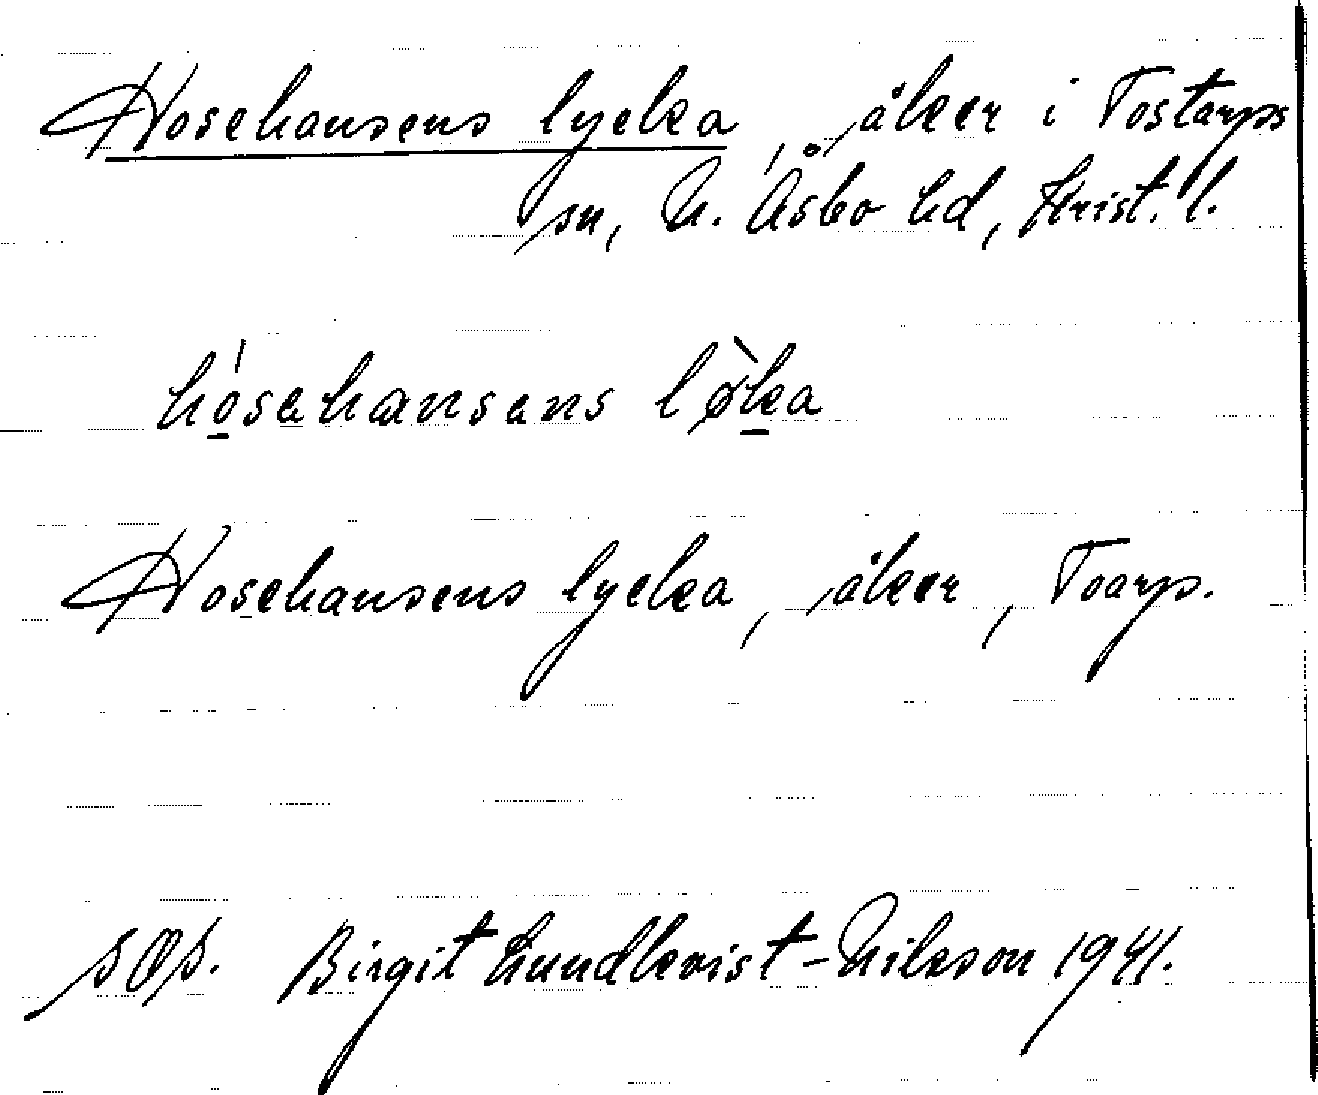 Hosehansens lycka, åker i Tostarps
sn, N. Åsbo hd, Krist. l.
hósahansans lø̀ka
Hosehansens lycka, åker, Toarp.
Birgit Lundkvist-Nilsson 1941.